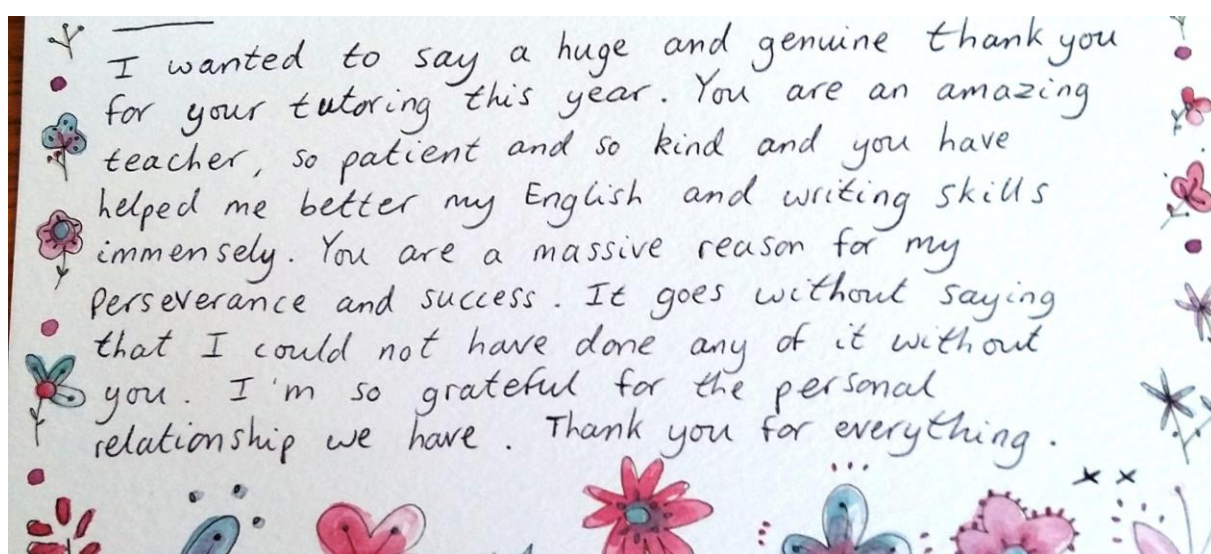 I wanted to say a huge and genuine thank you
for your tutoring this year. You are an amazing
teacher, so patient and so kind and you have
helped me better my English and writing skills
immensely. You are a massive reason for my
perseverance and success. It goes without saying
that I could not have done any of it without
you. I'm so grateful for the personal
relationship we have. Thank you for everything.
x x